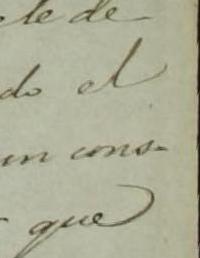 te de
do el
un cons-
que